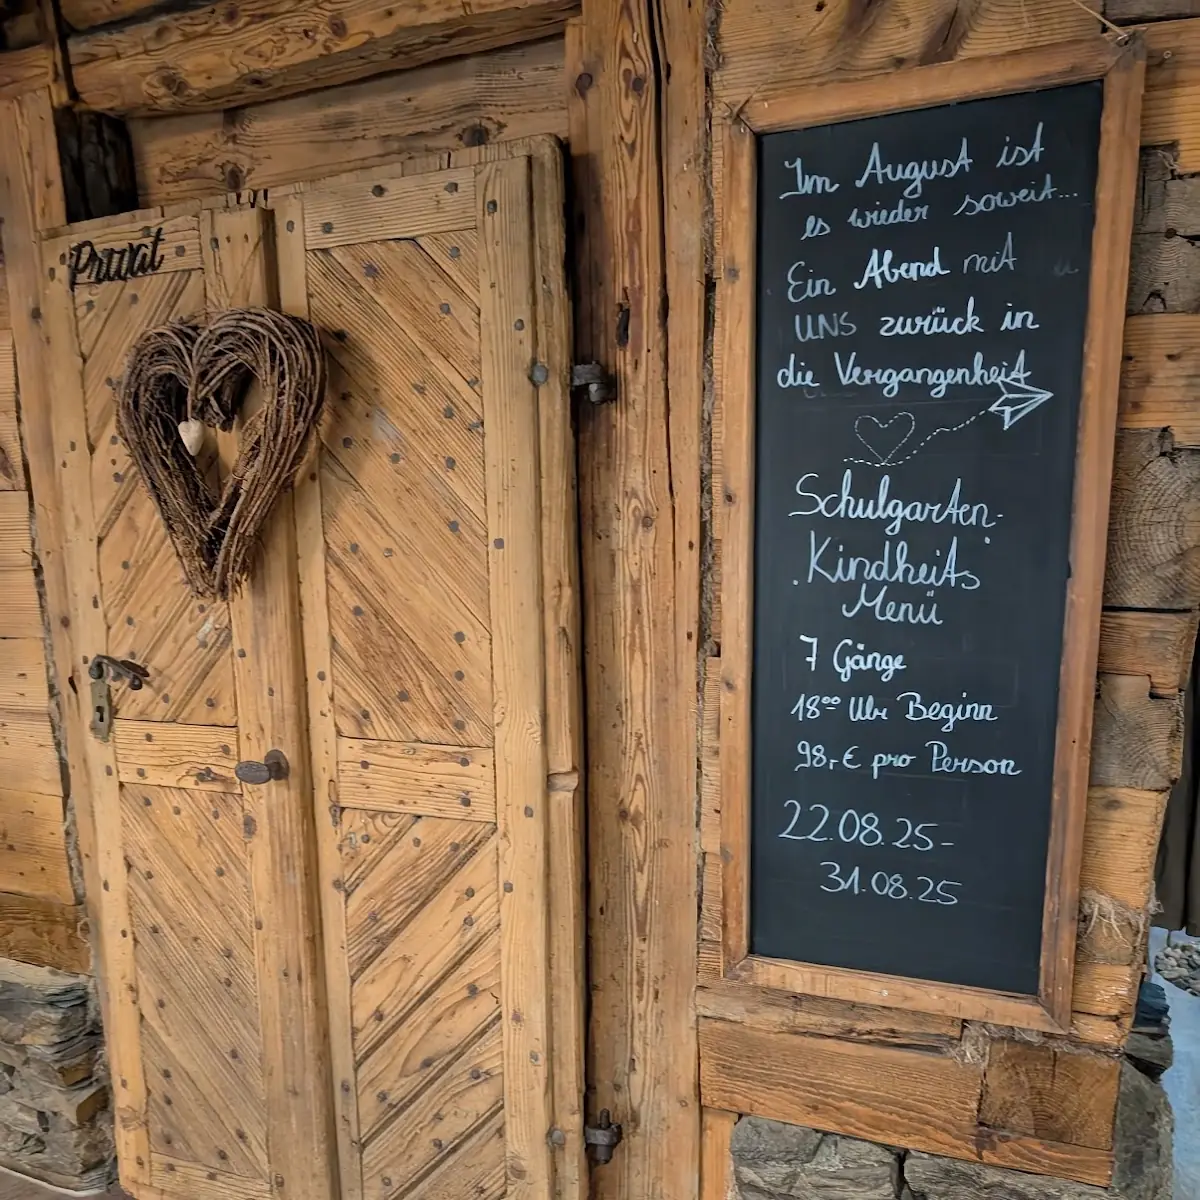 Privat
Im August ist
es wieder soweit...
Ein Abend mit
UNS zurück in
die Vergangenheit
Schulgarten-
Kindheits
Menü
7 Gänge
18°° Uhr Beginn
98,-€ pro Person
22.08.25-
31.08.25